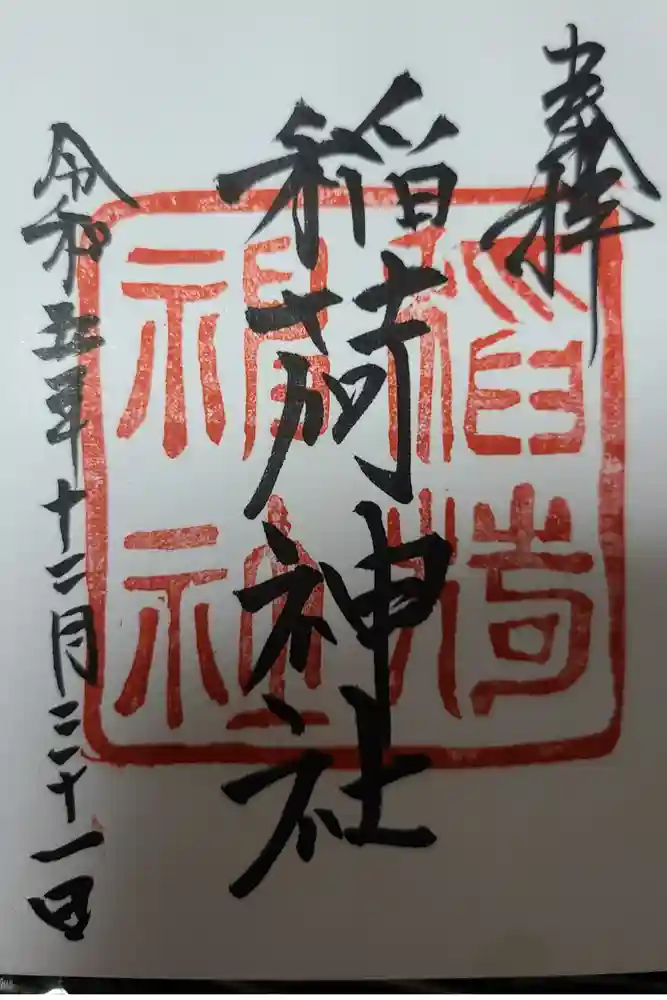 奉拝
稲荷神社
稲荷
神社
令和五年十二月三十一日